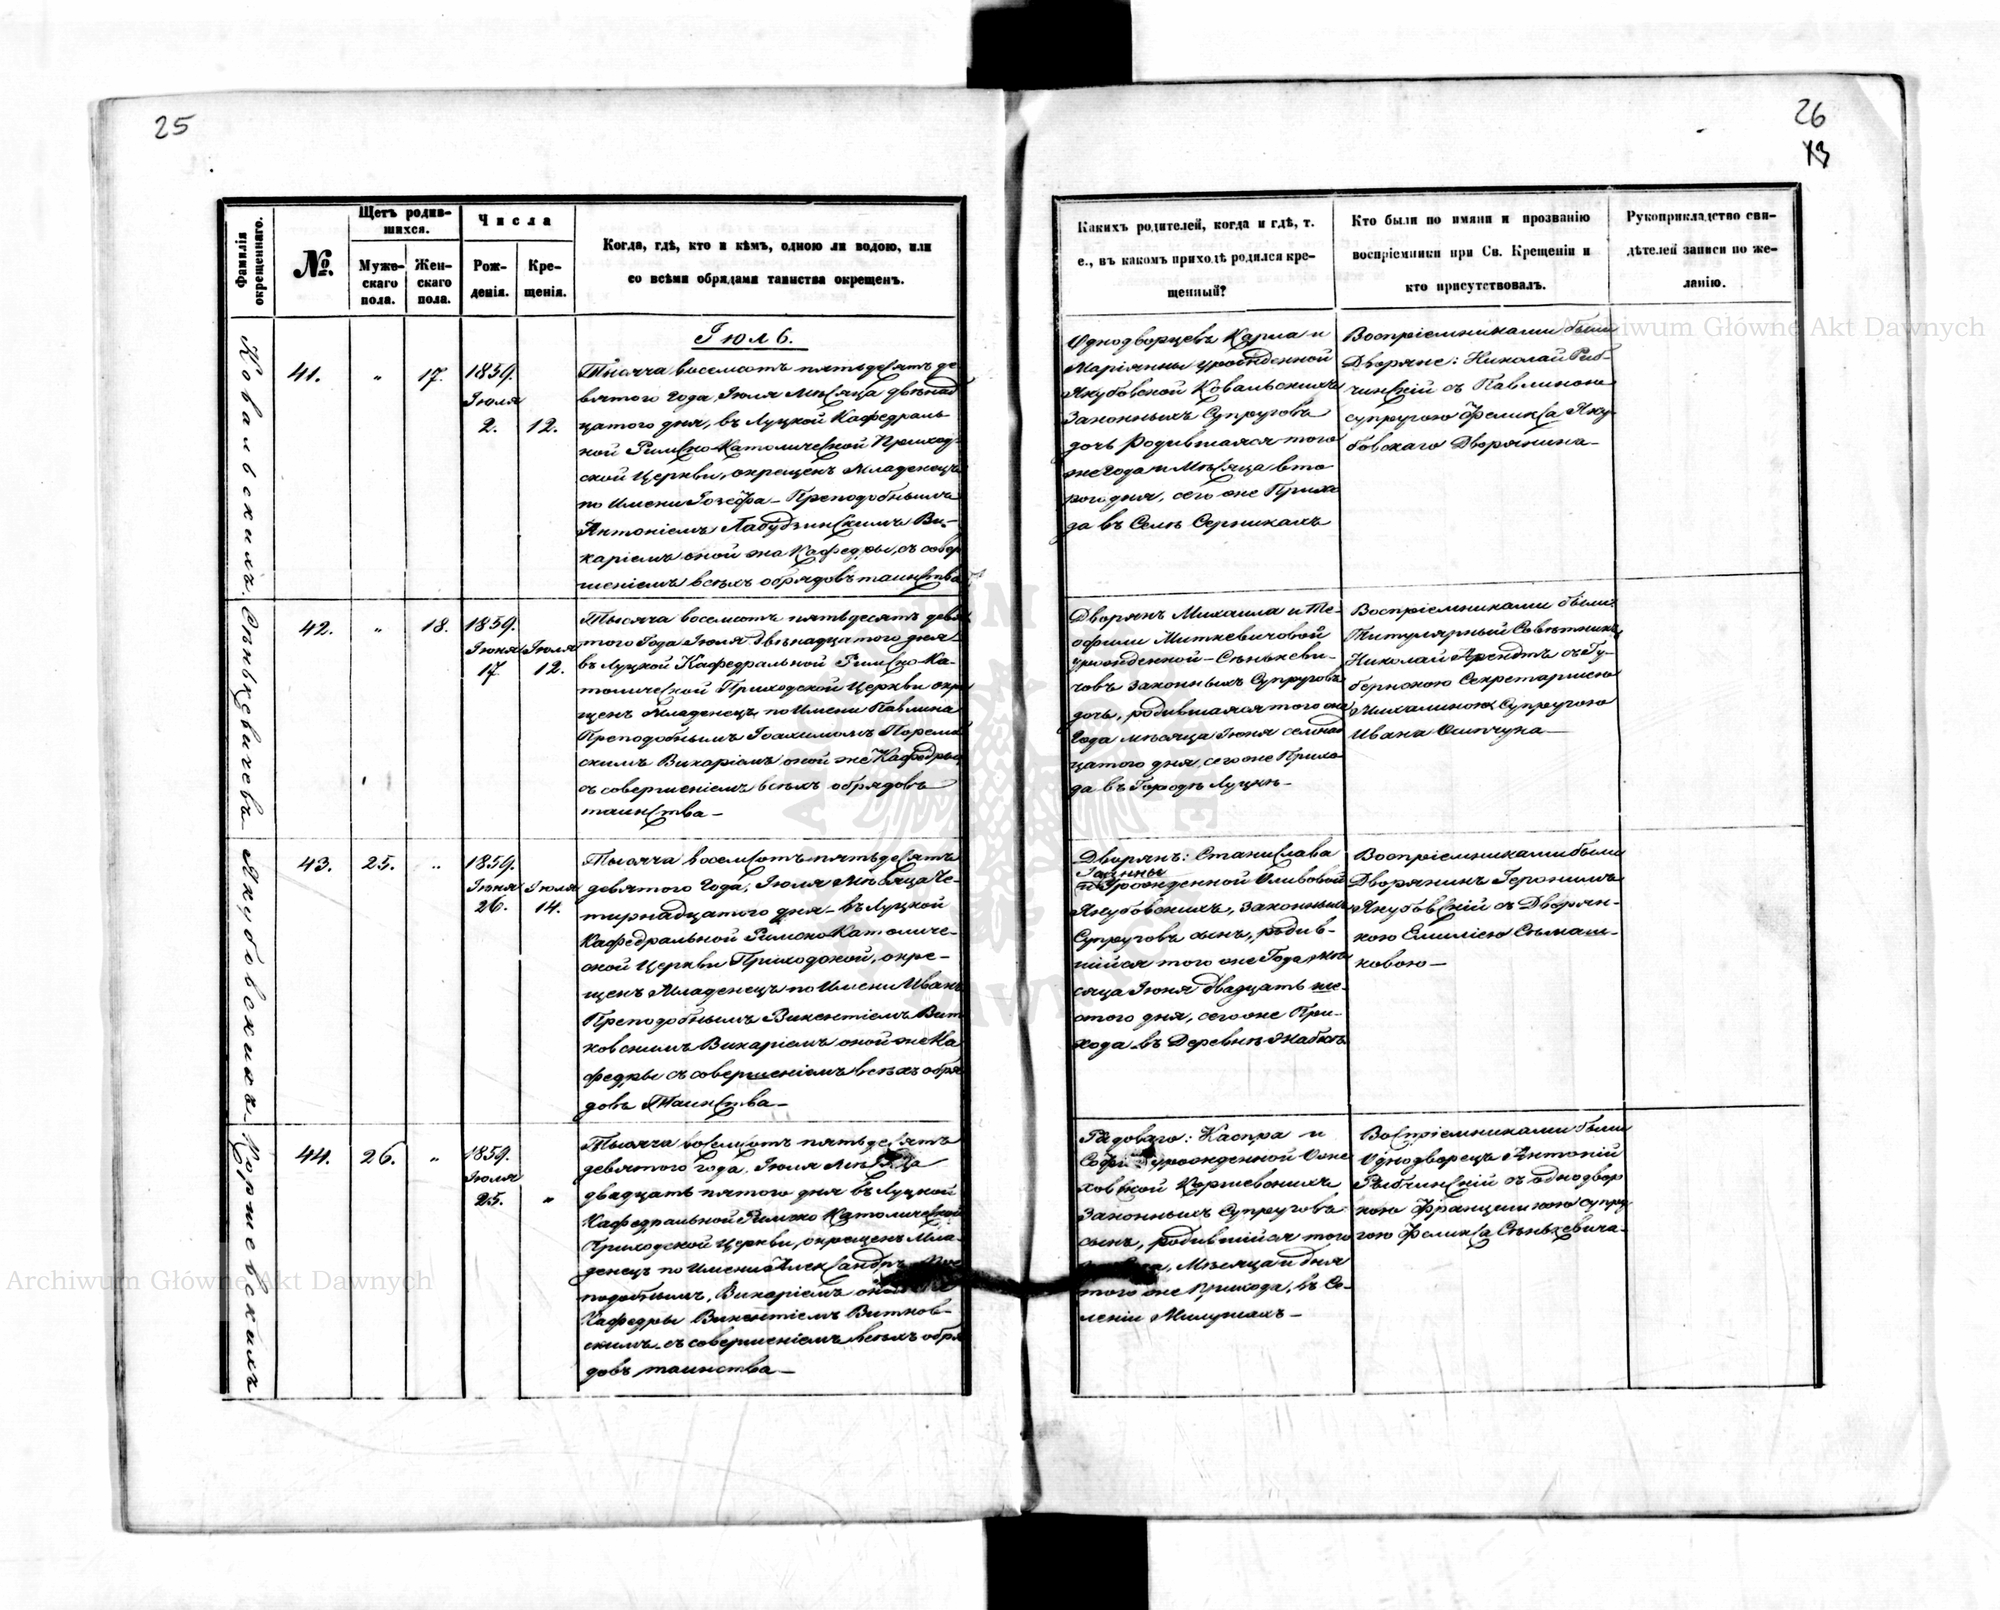 25
26
13
Фамилія окрещеннаго.
№.
Щетъ родив-
шихся.
Муже-
скаго
пола.
Жен-
скаго
пола.
Числа
Рож-
денія.
Кре-
щенія.
Когда, гдѣ, кто и кѣмъ, одною ли водою, или
со всѣми обрядами таинства окрещенъ.
Какихъ родителей, когда и гдѣ, т.
е., въ какомъ приходѣ родился кре-
щенный?
Кто были по имяни и прозванію
воспріемники при Св. Крещеніи и
кто присутствовалъ.
Рукоприкладство сви-
дѣтелей записи по же-
ланію.
Ковальскихъ.
41.
"
17.
1859.
Іюля
2.
12.
Іюль.
Тысяча восемсотъ пятьдесятъ де-
вятого года, Іюля Мѣсяца двѣнад-
цатого дня, въ Луцкой Кафедраль-
ной Римско-Католической Приход-
ской Церкви, окрещенъ Младенецъ
по Имени Іозефа – Преподобнымъ
Антоніемъ Лабудзинскимъ Ви-
каріемъ оной же Кафедры, съ совер-
шеніемъ всѣхъ обрядовъ таинства
Однодворцевъ Карла и
Маріянны урожденной
Якубовской Ковальскихъ
Законныхъ Супруговъ
дочь родившаяся того
же Года и Мѣсяца вто-
рого дня, сего же Прихо-
да въ Селѣ Серникахъ
Воспріемниками были
Дворяне: Николай Рыб-
чинскій съ Павлиною
супругою Феликса Яку-
бовскаго Дворянина –
Сѣнькевичевъ
42.
"
18.
1859.
Іюня
17.
Іюля
12.
Тысяча восемсотъ пятьдесятъ девя-
того Года Іюля двѣнадцатого дня
въ Луцкой Кафедральной Римско-Ка-
толической Приходской Церкви окре-
щенъ Младенецъ по Имени Павлина
Преподобнымъ Іоахимомъ
скимъ Викаріемъ оной же Кафедры
съ совершеніемъ всѣхъ обрядовъ
таинства –
Дворянъ Михаила и Те-
офили Миткевичовой
урожденной – Сѣнькеви-
човъ законныхъ Супруговъ
дочь, родившаяся того же
Года мѣсяца Іюня семнад-
цатого дня, сего же Прихо-
да въ Городѣ Луцкѣ –
Воспріемниками были:
Титулярный Совѣтникъ
Николай Арендтъ съ Гу-
бернскою Секретаршею
Михалиною Супругою
Ивана Осипчука –
Якубовскихъ
43.
25.
"
1859.
Іюня
26.
Іюля
14.
Тысяча восемсотъ пятьдесятъ
девятого Года, Іюля Мѣсяца Че-
тирнадцатого дня – въ Луцкой
Кафедральной Римско Католиче-
ской Церкви Приходской, окре-
щенъ Младенецъ по Имени Иванъ
Преподобнымъ Викентіемъ Вит-
ковскимъ Викаріемъ оной же Ка-
федры съ совершеніемъ всѣхъ обря-
довъ Таинства –
Дворянъ: Станислава
и Урожденной Оливовой
Якубовскихъ, законныхъ
Супруговъ сынъ, родив-
шійся того же Года Мѣ-
сяца Іюня двадцать ше-
стого дня, сего же При-
хода въ Деревнѣ Жабкѣ
Воспріемниками были
Дворянинъ Геронимъ
Якубовскій съ Дворян-
кою Емиліею Сѣмаш-
ковою –
Коржевскихъ
44.
26.
"
1859.
Іюля
25.
"
Тысяча восемсотъ пятьдесятъ
девятого года, Іюля Мѣсяца
двадцать пятого дня въ Луцкой
Кафедральной Римско Католической
Приходской Церкви, окрещенъ Мла-
денецъ по Имени Александръ, Пре-
подобнымъ, Викаріемъ оной же
Кафедры Викентіемъ Витков-
скимъ съ совершеніемъ всѣхъ обря-
довъ таинства –
Рядоваго: Каспра и
Софіи урожденной
Коржевскихъ
Законныхъ Супруговъ
сынъ, родившійся того
Мѣсяца и дня
того же Прихода, въ Се-
леніи Милушахъ –
Воспріемниками были
Однодворецъ Антоній
Рыбчинскій съ однодвор-
кою Францишкою супру-
гою Феликса Сѣнькевича –
Archiwum Główne Akt Dawnych
Archiwum Główne Akt Dawnych